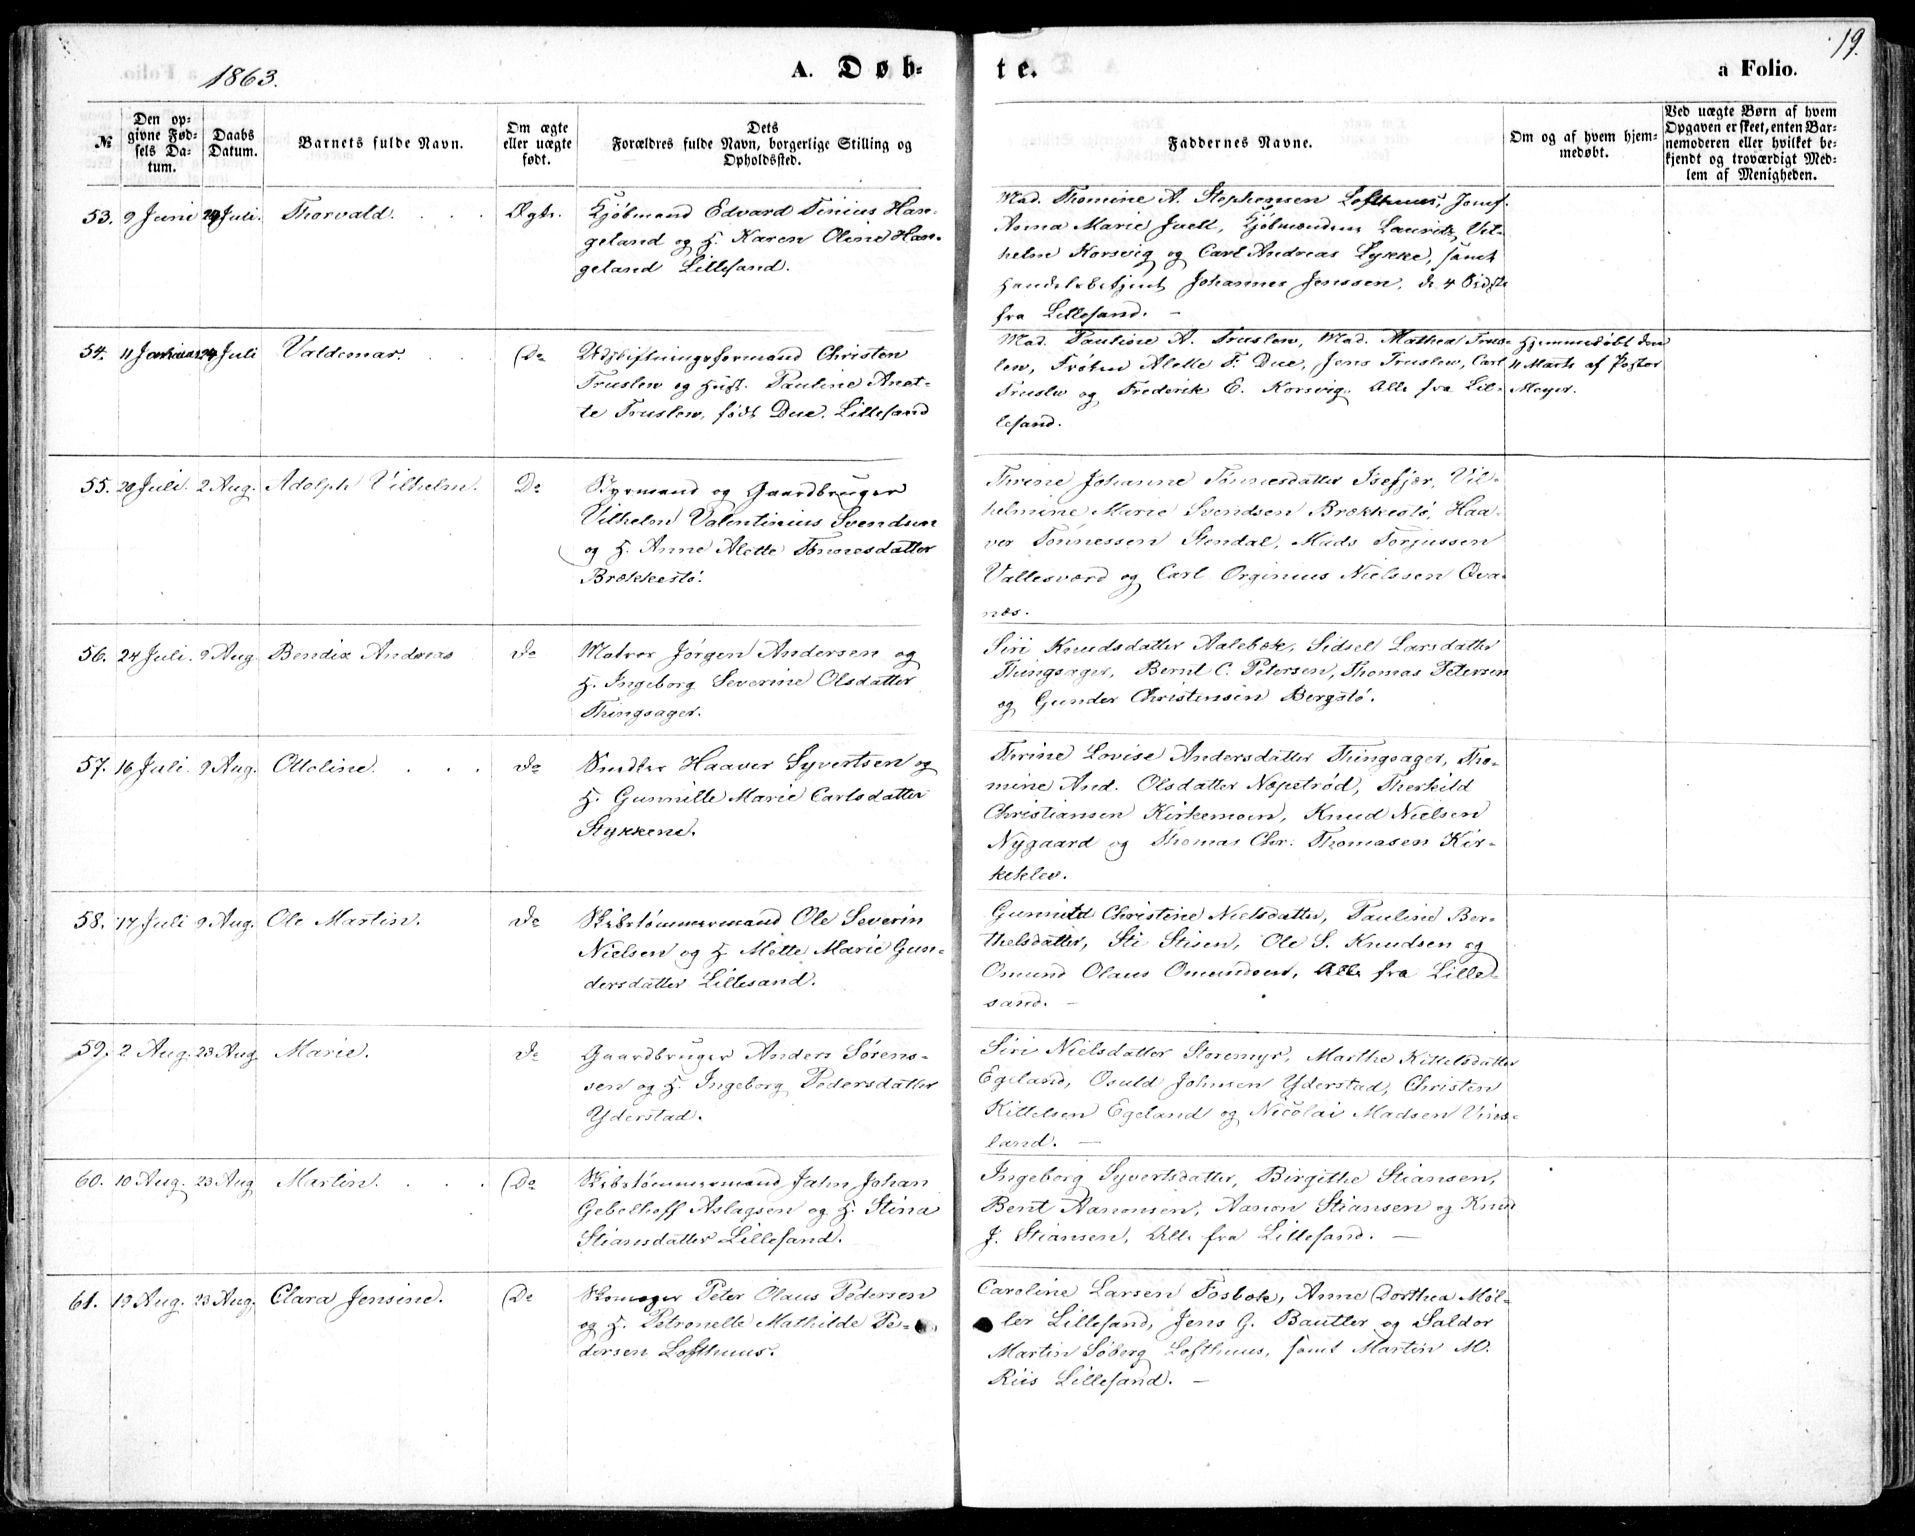 1863.
A. Døb-
te.
a Folio.
19.
№
Den op-
givne Fød-
sels Da-
tum.
Daabs
Datum.
Barnets fulde Navn.
Om ægte
eller uægte
født.
Dets
Forældres fulde Navn, borgerlige Stilling og
Opholdssted.
Faddernes Navne.
Om og af hvem hjem-
medøbt.
Ved uægte Børn af hvem
Opgaven er skeet, enten Bar-
nemoderen eller hvilket be-
kjendt og troværdigt Med-
lem af Menigheden.
53. 9 Juni Juli. Thorvald. Ægte.
Kjøbmand Edvard Tinius Han-
geland og H. Karen Oline Han-
geland Lillesand.
Mad. Thomine A. Stephensen Lofthuus, Jomf.
Anna Marie Juell, Kjøbmændene Laurits Vil-
helm Korsvig og Carl Andreas Lykke, samt
Handelsbetjent Johannes Jenssen, de 4 Sidste
fra Lillesand. –
54. 11 Januar Juli Valdemar. Do
Udskiftningsformand Christen
Truslew og Hust. Pauline Anet-
te Truslew, født Due. Lillesand
Mad. Pauline A. Truslew, Mad. Mathea Trus-
lew, Frøken Alette F. Due, Jens Truslew, Carl
Truslew og Frederik E. Korsvig. Alle fra Lil-
lesand.
Hjemmedøbt den
11 Marts af Pastor
Meyer.
55. 20 Juli. 2 Aug. Adolph Vilhelm. Do
Styrmand og Gaardbruger
Vilhelm Valentinius Svendsen
og H. Anne Alette Tønnesdatter
Brækkestø.
Thrine Johanne Tønnesdatter Isefjær, Vil-
helmine Marie Svendsen Brækkestø, Haa-
ver Tønnessen Stendal, Mads Torjussen
Vallesværd og Carl Orginius Nielssen Qva-
næs.
56. 24 Juli. 9 Aug Bendix Andreas do
Matros Jørgen Andersen og
H. Ingeborg Severine Olsdatter
Thingsager.
Siri Knudsdatter Aalebæk, Sidsel Larsdatter
Thingsager, Bernt C. Petersen, Thomas Petersen
og Gunder Christensen Bergstø.
57. 16 Juli. 9 Aug. Ottoline. do
Snedker Haaver Syvertsen og
H. Gunnille Marie Carlsdatter
Stykkene.
Thrine Lovise Andersdatter Thingsager, Tho-
mine And. Olsdatter Næpetrød, Therkild
Christiansen Kirkemoen, Knud Nielsen
Nygaard og Thomas Chr. Thomasen Kir-
keklev.
58. 17 Juli 9 Aug. Ole Martin. do
Skibstømmermand Ole Severin
Nielsen og H. Mette Marie Gun-
dersdatter Lillesand.
Gunnild Christine Nielsdatter, Pauline Ber-
thelsdatter, Sti Stisen, Ole S. Knudsen og
Omund Olaus Omundsen, Alle fra Lille-
sand. –
59. 2 Aug. 23 Aug Marie. do
Gaardbruger Anders Sørens-
sen og H. Ingeborg Pedersdatter
Yderstad.
Siri Nielsdatter Storemyr, Marthe Kittelsdatter
Egeland, Osuld Johnsen Yderstad, Christen
Kittelsen Egeland og Nicolai Madsen Vires-
land. –
60. 10 Aug. 23 Aug Martin. Do
Skibstømmermand Jahn Johan
Gebelhoff Aslagsen og H. Stina
Stiansdatter Lillesand.
Ingeborg Syvertsdatter, Birgithe Stiansen,
Bent Aanonsen, Aanon Stiansen og Knud
J. Stiansen, Alle fra Lillesand. –
61. 19 Aug. 23 Aug. Clara Jensine. Do
Skomager Peter Olaus Pedersen
og H. Petronelle Mathilde Pe-
dersen Lofthuus.
Caroline Larsen Fosbæk, Anne Dorthea Møl-
ler Lillesand, Jens G. Bautler og Saldor
Martin Søberg Lofthuus, samt Martin M.
Riis Lillesand. –